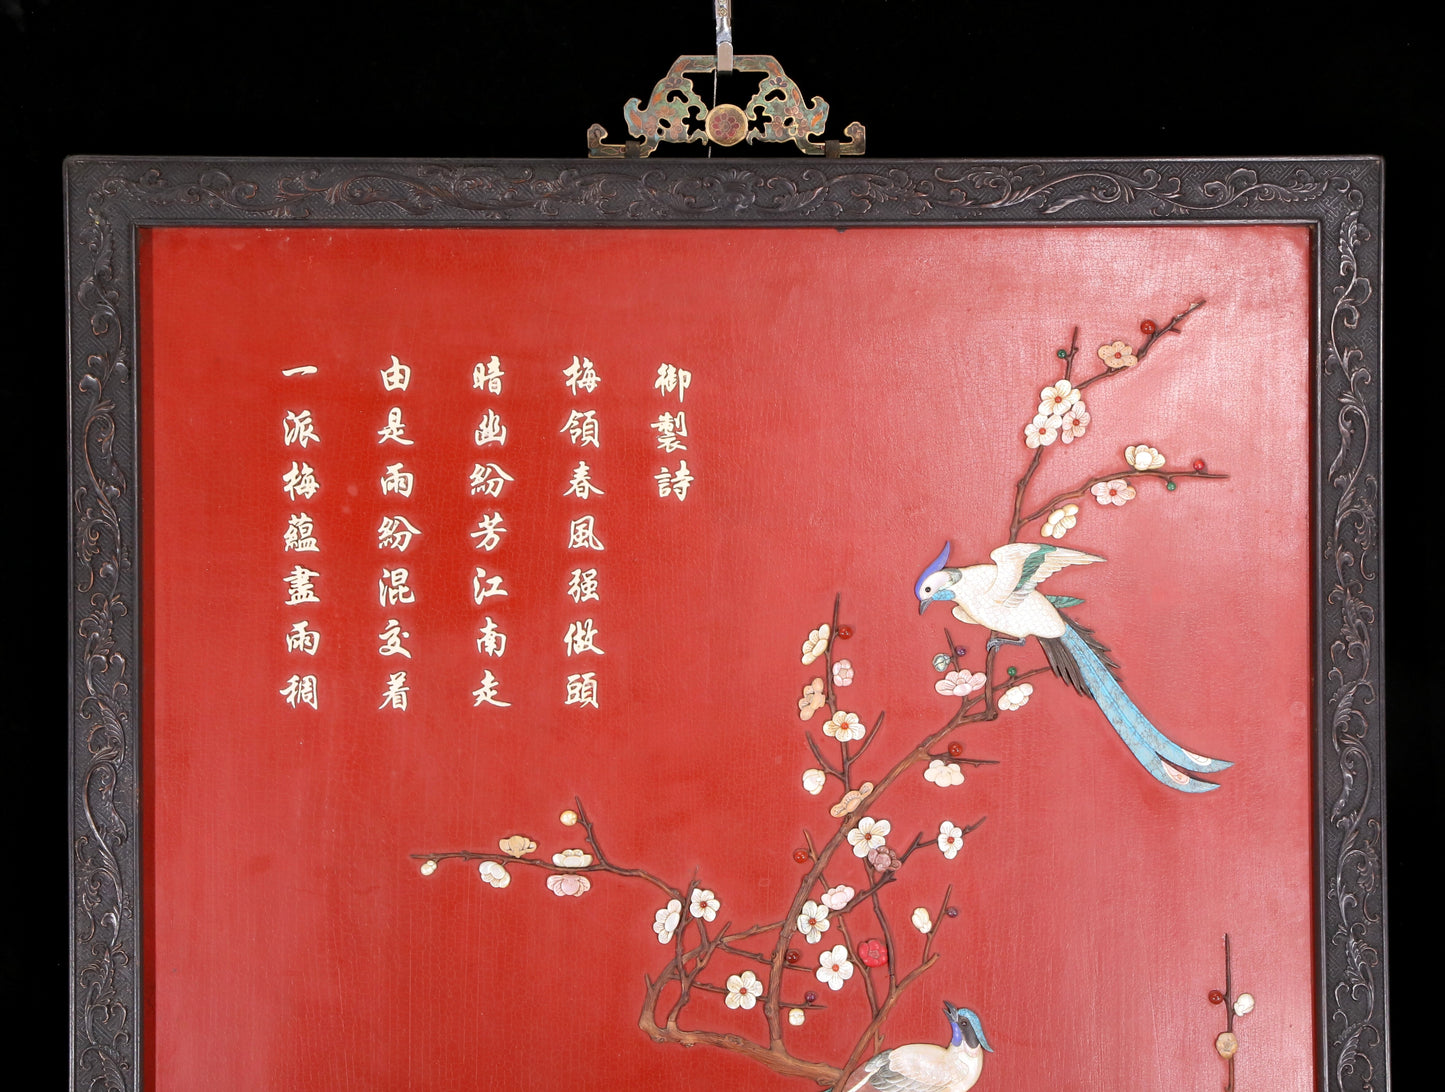 御製詩
梅領春風强做頭
暗幽紛芳江南走
由是雨紛混交着
一派梅蘊盡雨稠